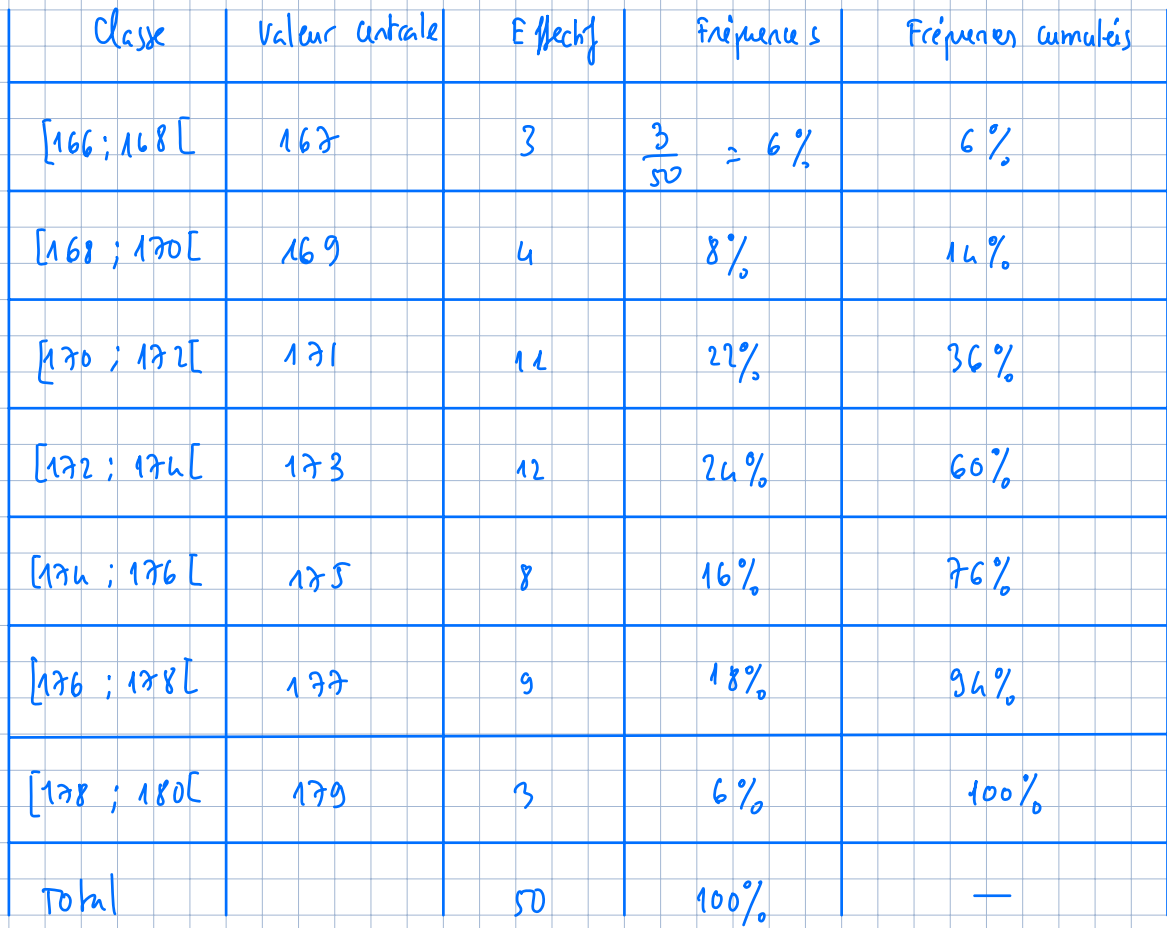 Classe Valeur centrale Effectif Fréquences Fréquences cumulées
[166 ; 168[ 167 3 3/50 = 6% 6%
[168 ; 170[ 169 4 8% 14%
[170 ; 172[ 171 11 22% 36%
[172 ; 174[ 173 12 24% 60%
[174 ; 176[ 175 8 16% 76%
[176 ; 178[ 177 9 18% 94%
[178 ; 180[ 179 3 6% 100%
Total 50 100% —